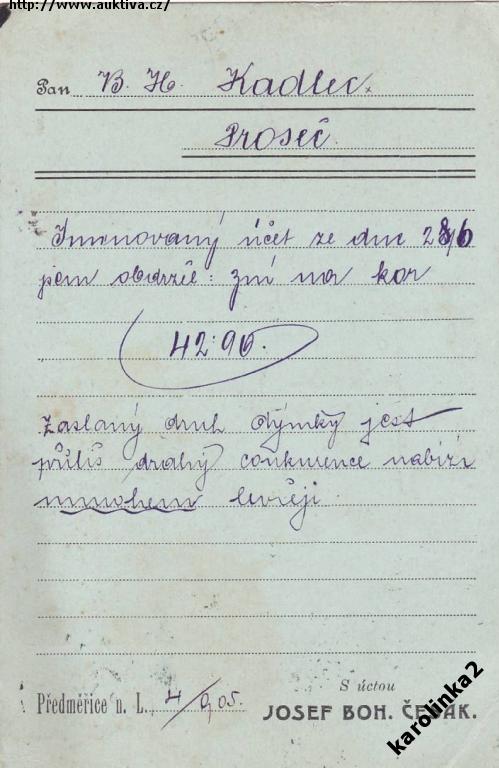 http://www.auktiva.cz/
Pan B. H. Kadlec.
Proseč.
Jmenovaný účet ze dne 28/6
jsem obdržel: zní na kor
42:90.
Zaslaný druh dýmky jest
příliš drahý conkurence nabízí
mnohem levněji.
Předměřice n. L., 4/ 05.
S úctou
JOSEF BOH. ČEŘÁK.
karolinka2